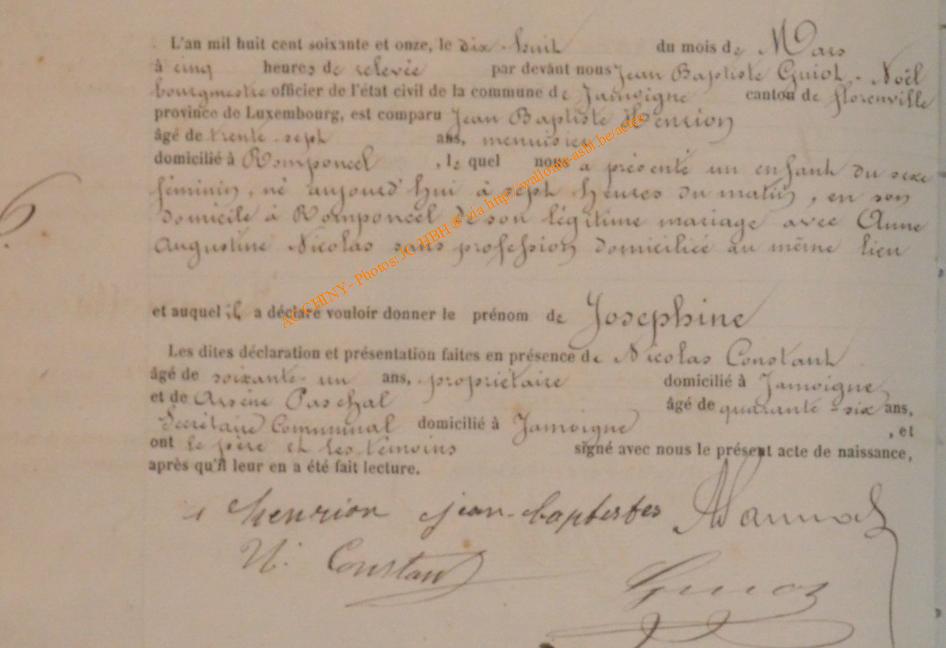 L'an mil huit cent soixante et onze, le dix-huit du mois de Mars
à cinq heures de relevée par devant nous Jean Baptiste Guiot-Noël
bourgmestre officier de l'état civil de la commune de Jamoigne canton de florenville
province de Luxembourg, est comparu Jean Baptiste Henrion
âgé de trente-sept ans, menuisier
domicilié à Romponcel, le quel nous a présenté un enfant du sexe
féminin, né aujourd'hui à sept heures du matin, en son
domicile à Romponcel de son légitime mariage avec Anne
Augustine Nicolas sans profession domiciliée au même lieu
6.
et auquel il a déclaré vouloir donner le prénom de Josephine
Les dites déclaration et présentation faites en présence de Nicolas Constant
âgé de soixante-un ans, propriétaire domicilié à Jamoigne
et de Arsène Paschal âgé de quarante-six ans,
Secrétaire Communal domicilié à Jamoigne, et
ont le père et les témoins signé avec nous le présent acte de naissance,
après qu'il leur en a été fait lecture.
henrion jean-baptestes
N. Constant
AC CHINY - Photos: JG HBH © via http://evallouis-asbl.be/actes